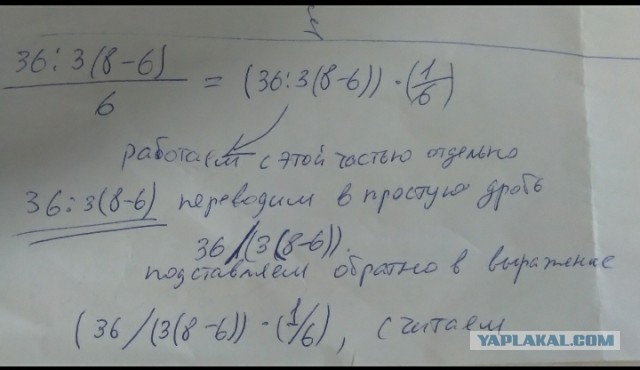 36:3(8-6)/6 = (36:3(8-6))·(1/6)
работаем с этой частью отдельно
36:3(8-6) переводим в простую дробь
36/(3(8-6)).
подставляем обратно в выражение
(36/(3(8-6))·(1/6), считаем
YAPLAKAL.COM